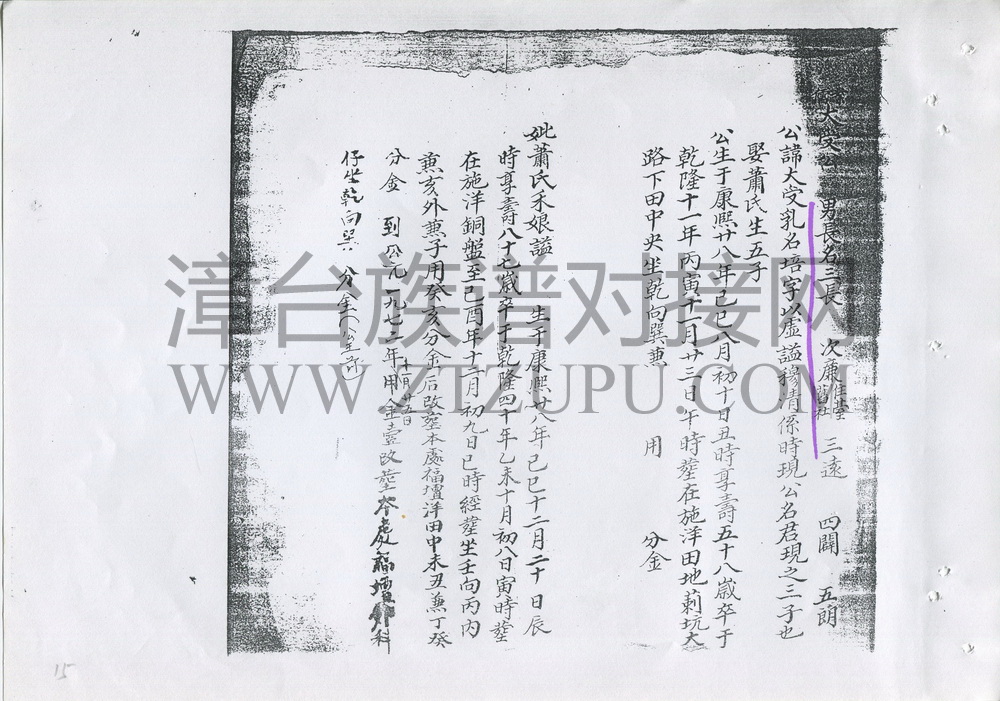 大受公 男長名三長 次康 三遠 四闢 五朗
公諱大受乳名培字以虛謚穆清係時現公名君現之三子也
娶蕭氏生五子
公生于康熙廿八年己巳八月初十日丑時享壽五十八歲卒于
乾隆十一年丙寅十一月廿三日午時塟在施洋田地莿坑大
路下田中央坐乾向巽兼 用 分金
妣蕭氏禾娘謚 生于康熙廿八年己巳十二月二十日辰
時享壽八十七歲卒于乾隆四十年乙未十月初八日寅時塟
在施洋銅盤至己酉年十二月初九日巳時經塟坐壬向丙内
兼亥外兼子用癸亥分金后改塟本處福壇洋田中未丑兼丁癸
分金 到公元一九七二年用金壹改塟本處福壇外科
仔坐乾向巽 分金
漳台族谱对接网
WWW.ZTZUPU.COM
15